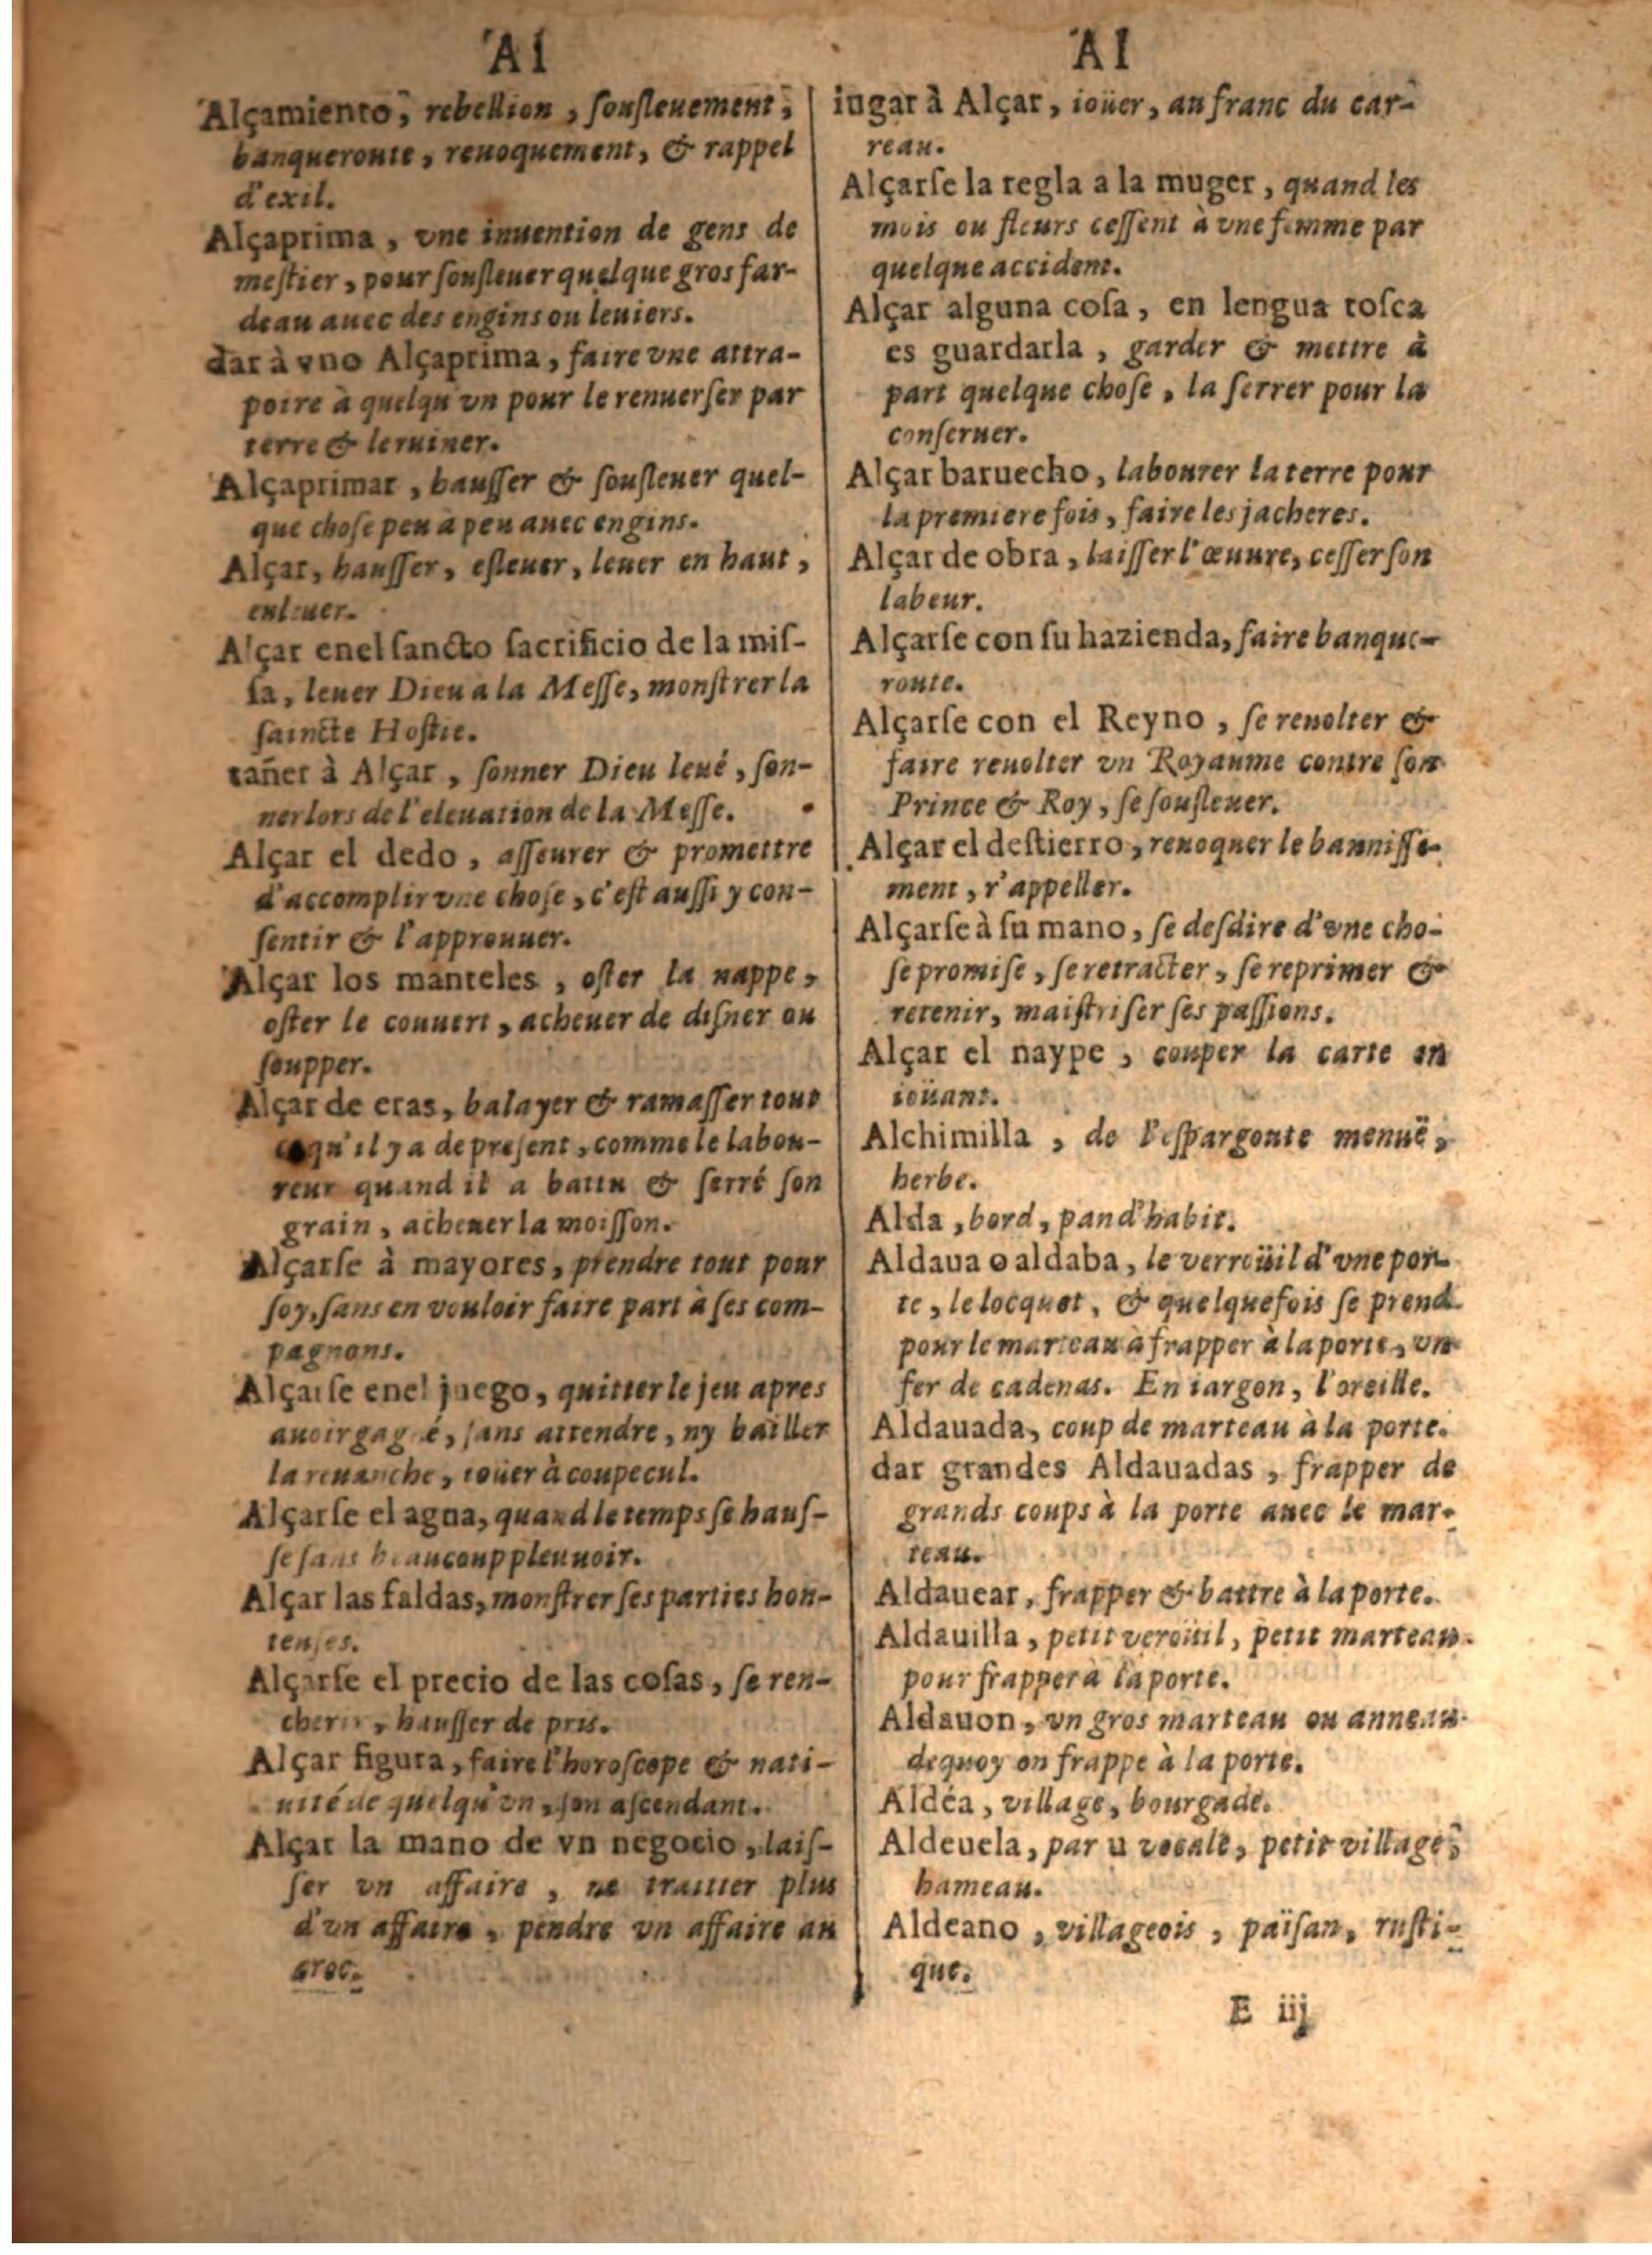 Al
Alçamiento, rebellion, ſouſleuement,
banqueroute, reuoquement, & rappel
d'exil.
Alçaprima, vne inuention de gens de
meſtier, pour ſouſleuer quelque gros far-
deau auec des engins ou leuiers.
dar à vno Alçaprima, faire vne attra-
poire à quelqu'vn pour le renuerſer par
terre & le ruiner.
Alçaprimar, hauſſer & ſouſleuer quel-
que choſe peu à peu auec engins.
Alçar, hauſſer, eſleuer, leuer en haut,
enleuer.
Alçar enel ſancto ſacrificio de la miſ-
ſa, leuer Dieu a la Meſſe, monſtrer la
ſaincte Hoſtie.
tañer à Alçar, ſonner Dieu leué, ſon-
ner lors de l'eleuation de la Meſſe.
Alçar el dedo, aſſeurer & promettre
d'accomplir vne choſe, c'eſt auſſi y con-
ſentir & l'approuuer.
Alçar los manteles, oſter la nappe,
oſter le couuert, acheuer de diſner ou
ſoupper.
Alçar de eras, balayer & ramaſſer tout
ce qu'il y a de preſent, comme le labou-
reur quand il a battu & ſerré ſon
grain, acheuer la moiſſon.
Alçarſe à mayores, prendre tout pour
ſoy, ſans en vouloir faire part à ſes com-
pagnons.
Alçarſe enel juego, quitter le jeu apres
auoir gagné, ſans attendre, ny bailler
la reuanche, ioüer à coupecul.
Alçarſe el agua, quand le temps ſe hauſ-
ſe ſans beaucoup pleuuoir.
Alçar las faldas, monſtrer ſes parties hon-
teuſes.
Alçarſe el precio de las coſas, ſe ren-
cherir, hauſſer de pris.
Alçar figura, faire l'horoſcope & nati-
uité de quelqu'vn, ſon aſcendant.
Alçar la mano de vn negocio, laiſ-
ſer vn affaire, ne traitter plus
d'vn affaire, pendre vn affaire au
croc.
Al
iugar à Alçar, ioüer, au franc du car-
reau.
Alçarſe la regla a la muger, quand les
mois ou fleurs ceſſent à vne femme par
quelque accident.
Alçar alguna coſa, en lengua toſca
es guardarla, garder & mettre à
part quelque choſe, la ſerrer pour la
conſeruer.
Alçar baruecho, labourer la terre pour
la premiere fois, faire les jacheres.
Alçar de obra, laiſſer l'œuure, ceſſer ſon
labeur.
Alçarſe con ſu hazienda, faire banque-
route.
Alçarſe con el Reyno, ſe reuolter &
faire reuolter vn Royaume contre ſon
Prince & Roy, ſe ſouſleuer.
Alçar el deſtierro, reuoquer le banniſſe-
ment, r'appeller.
Alçarſe à ſu mano, ſe deſdire d'vne cho-
ſe promiſe, ſe retracter, ſe reprimer &
retenir, maiſtriſer ſes paſſions.
Alçar el naype, couper la carte en
ioüant.
Alchimilla, de l'eſpargoute menuë,
herbe.
Alda, bord, pand'habit.
Aldaua o aldaba, le verroüil d'vne por-
te, le locquet, & quelquefois ſe prend
pour le marteau à frapper à la porte, vn
fer de cadenas. En iargon, l'oreille.
Aldauada, coup de marteau à la porte.
dar grandes Aldauadas, frapper de
grands coups à la porte auec le mar-
teau.
Aldauear, frapper & battre à la porte.
Aldauilla, petit veroüil, petit marteau
pour frapper à la porte.
Aldauon, vn gros marteau ou anneau
dequoy on frappe à la porte.
Aldéa, village, bourgade.
Aldeuela, par u vocale, petit village,
hameau.
Aldeano, villageois, païſan, ruſti-
que.
E iij